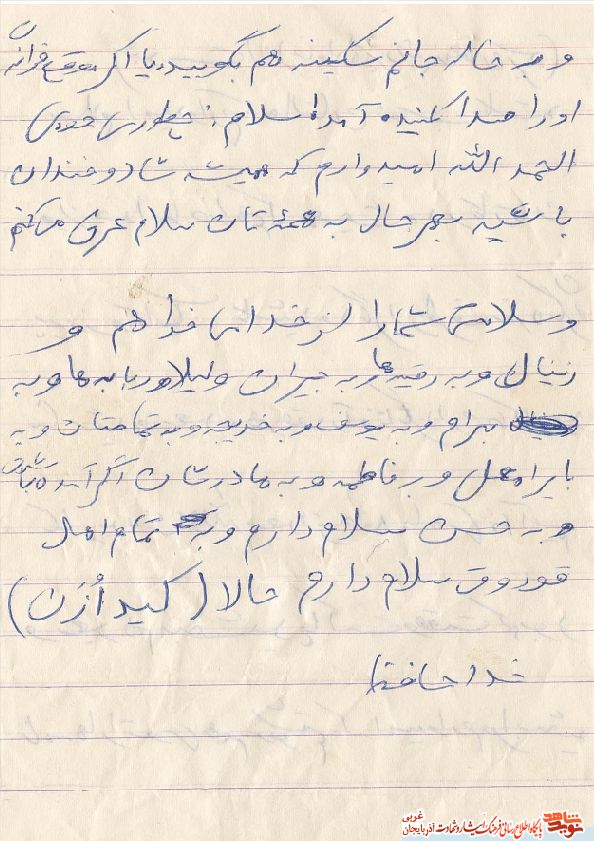 و به خاله جانم سکینه هم بگویید یا اگر موقع قرائت
او را صدا کنید آمد سلام: چطوری خوبی
الحمد الله امیدوارم که همیشه شاد و خندان
باشید بهر حال به همه تان سلام عرض میکنم
و سلامتی شما را از خدا می خواهم و
زینال و به رقیه و به جیران و لیلا و به
بهرام و به یوسف و به خدیجه و به تمامتان و به
بایرامعلی و به فاطمه و به مادرشان اگر آمده باشد
و به حسن سلام دارم و به تمام اهل
قوروق سلام دارم حالا (گید اُزن)
خدا حافظ
نوید شاهد
پایگاه اطلاع رسانی فرهنگ ایثار و شهادت آذربایجان غربی